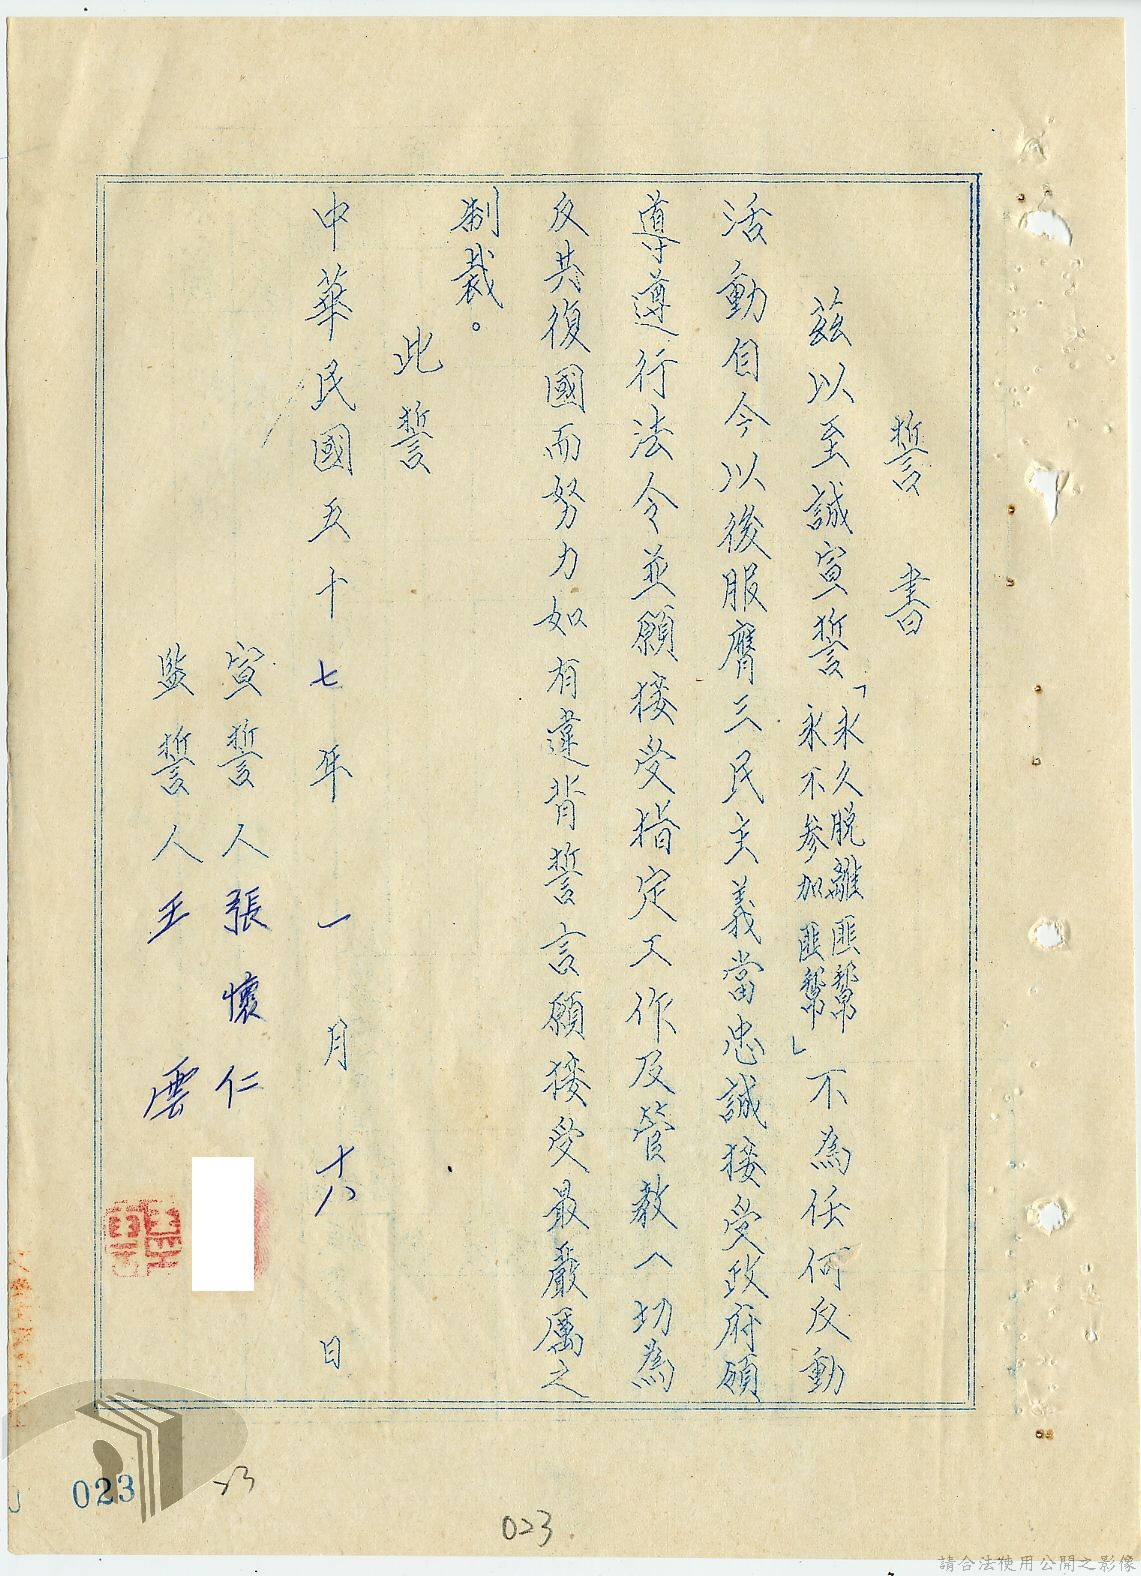 誓書
茲以至誠宣誓「永久脫離匪幫
永不參加匪幫」不為任何反動
活動自今以後服膺三民主義當忠誠接受政府領
導遵行法令並願接受指定工作及管教一切為
反共復國而努力如有違背誓言願接受最嚴厲之
制裁。
此誓
中華民國五十七年一月十六日
宣誓人張懷仁
監誓人王雲
023
023
請合法使用公開之影像